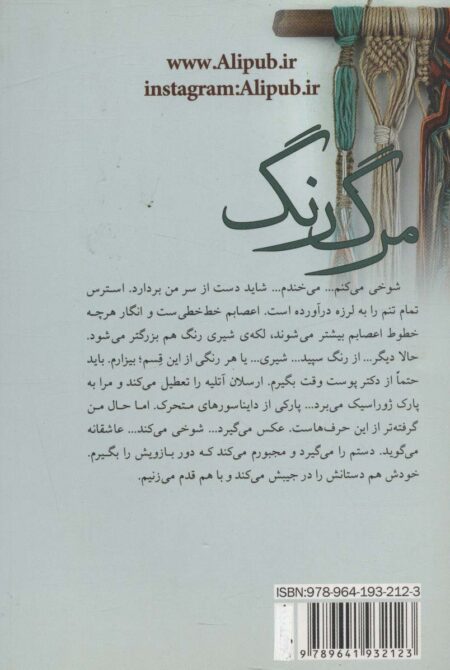 www.Alipub.ir
instagram:Alipub.ir
مرگ رنگ
شوخی می‌کنم... می‌خندم... شاید دست از سر من بردارد. استرس
تمام تنم را به لرزه درآورده است. اعصابم خط‌خطی‌ست و انگار هرچه
خطوط اعصابم بیشتر می‌شوند، لکه‌ی شیری رنگ هم بزرگتر می‌شود.
حالا دیگر... از رنگ سپید... شیری... یا هر رنگی از این قِسم؛ بیزارم. باید
حتماً از دکتر پوست وقت بگیرم. ارسلان آتلیه را تعطیل می‌کند و مرا به
پارک ژوراسیک می‌برد... پارکی از دایناسورهای متحرک. اما حال من
گرفته‌تر از این حرف‌هاست. عکس می‌گیرد... شوخی می‌کند... عاشقانه
می‌گوید. دستم را می‌گیرد و مجبورم می‌کند که دور بازویش را بگیرم.
خودش هم دستانش را در جیبش می‌کند و با هم قدم می‌زنیم.
ISBN:978-964-193-212-3
9 789641 932123